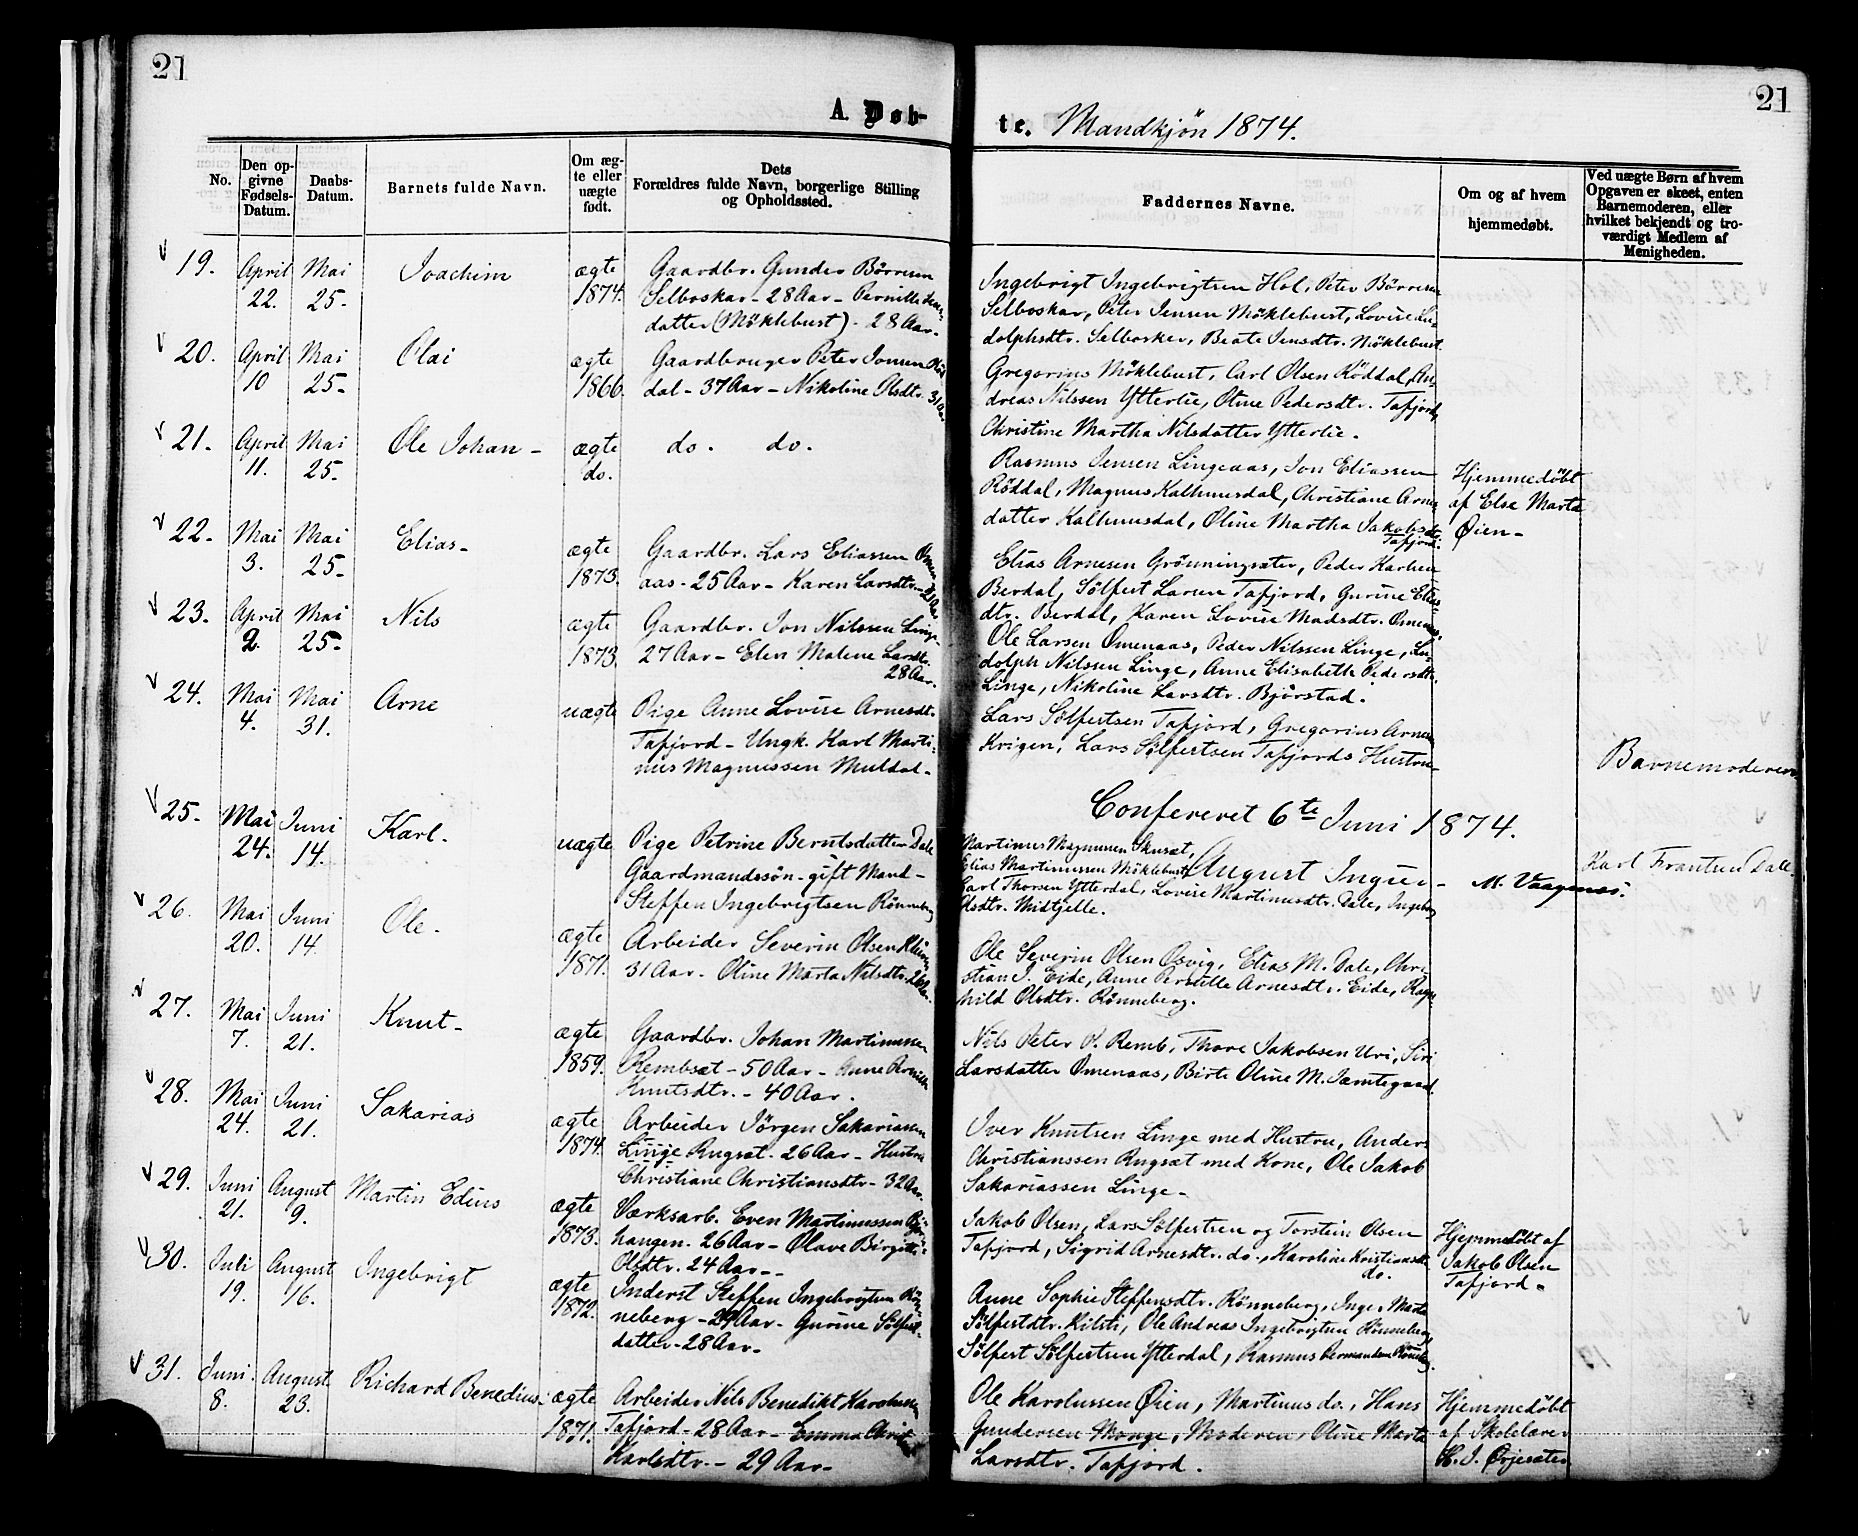 21
21
A. Døb-
te. Mandkjøn 1874.
No.
Den op-
givne
Fødsels-
Datum.
Daabs-
Datum.
Barnets fulde Navn.
Om æg-
te eller
uægte
født.
Dets
Forældres fulde Navn, borgerlige Stilling
og Opholdssted.
Faddernes Navne.
Om og af hvem
hjemmedøbt.
Ved uægte Børn af hvem
Opgaven er skeet, enten
Barnemoderen, eller
hvilket bekjendt og tro-
værdigt Medlem af
Menigheden.
19.
April
22.
Mai
25-
Joachim
ægte
1874.
Gaardbr. Gunder Børresen
Selboskar - 28 Aar - Pernille
datter (Møklebust). 28 Aar.
Ingebrigt Ingebrigtsen Hol, Peter Børresen
Selboskar, Peter Jensen Møklebust, Lovise Lu-
dolphsdtr. Selbosker, Beate Jensdtr. Møklebust
20.
April
10
Mai
25-
Olai
ægte
1866.
Gaardbruger Peter Jonsen Rød
dal - 37 Aar - Nikoline Olsdtr. 31 Aar
Gregorius Møklebust, Carl Olsen Røddal, An-
dreas Nilssen Ytterlie, Oline Pedersdtr. Tafjord,
Christine Martha Nilsdatter Ytterlie.
21.
April
11.
Mai
25.
Ole Johan -
ægte
do.
do. do.
Rasmus Jensen Lingeaas, Jon Eliassen
Røddal, Magnus Kalhusdal, Christiane Arne
datter Kalhusdal, Oline Martha Jakobsdtr.
Tafjord.
Hjemmedøbt
af Else Marta
Øien-
22.
Mai
3.
Mai
25-
Elias-
ægte
1873.
Gaardbr. Lars Eliassen Omen
aas - 25 Aar - Karen Larsdtr. - 21 Aar
Elias Arnesen Grønningsæter, Peder Karlsen
Berdal, Sølfest Larsen Tafjord, Gurine Elias
dtr. Berdal, Karen Lovise Madsdtr. Omenaas.
23.
April
2.
Mai
25-
Nils
ægte
1873.
Gaardbr. Jon Nilssen Linge-
27 Aar - Elen Malene Larsdtr.
28 Aar.
Ole Larsen Omenaas, Peder Nilssen Linge, Lu-
dolph Nilssen Linge, Anne Elisabeth Pedersdtr.
Linge, Nikoline Larsdtr. Bjørstad.
24.
Mai
4.
Mai
31.
Arne
uægte
Pige Anne Lovise Arnesdt.
Tafjord - Ungk. Karl Marti-
nus Magnussen Muldal-
Lars Sølfestsen Tafjord, Gregorius Arnesen
Krigen, Lars Sølfestsen Tafjords Hustru-
Barnemoderen
Confereret 6te Juni 1874.
August Inguer-
M. Vaagenæs.
25-
Mai
24.
Juni
14.
Karl.
uægte
Pige Petrine Berntsdatter Dale
Gaardmandssøn - gift Mand -
Steffen Ingebrigtsen Rønneberg
Martinus Magnussen Skusæt,
Elias Martinussen Møklebust,
Carl Thorsen Ytterdal, Lovise Martinusdtr. Dale, Ingeborg
Olsdtr. Midtjelle.
Karl Frantsen Dale.
26.
Mai
20.
Juni
14.
Ole.
ægte
1871.
Arbeider Severin Olsen
31 Aar - Oline Marta Nilsdtr. 26 Aar.
Ole Severin Olsen Osvig, Elias M. Dale, Chri-
stian J. Eide, Anne Pernille Arnesdtr. Eide, Ragn
hild Olsdtr. Rønneberg.
27.
Mai
7.
Juni
21.
Knut-
ægte
1859.
Gaardbr. Johan Martinussen
Rembsæt - 50 Aar - Anne Pernille
Knutsdtr. - 40 Aar.
Nils Peter K. Remb, Thore Jakobsen Uri, Siri
Larsdatter Omenaas, Birte Oline M. Jamtegaard.
28.
Mai
24.
Juni
21.
Sakarias
ægte
1874.
Arbeider Jørgen Sakariassen
Linge Rugsæt - 26 Aar - Hustru
Christiane Christiansdtr - 32 Aar.
Iver Knutsen Linge med Hustru, Anders
Christianssen Rugsæt med Kone, Ole Jakob
Sakariassen Linge-
29.
Juni
21.
August
9.
Martin Edius
ægte
1873.
Værksarb. Even Martinussen
hangen. 26 Aar - Olave Birgitte
Olsdtr. 24 Aar-
Jakob Olsen, Lars Sølfestsen og Torstein Olsen
Tafjord, Sigrid Arnesdtr. do., Karoline Kristiansdtr
do.
Hjemmedøbt af
Jakob Olsen
Tafjord-
30.
Juli
19.
August
16.
Ingebrigt
ægte
1872.
Inderst Steffen Ingebrigtsen Røn-
neberg - 29 Aar - Gurine Sølfest-
datter - 28 Aar-
Anne Sophie Steffensdtr. Rønneberg, Inger Marta
Sølfestdtr. Kilsti, Ole Andreas Ingebrigtsen Rønneberg
Sølfest Sølfestsen Ytterdal, Rasmus Bermandsen Rønneberg.
31.
Juni
8.
August
23.
Richard Benedius-
ægte
1871.
Arbeider Nils Benedikt Karolussen
Tafjord - 28 Aar - Emma
Karlsdtr. - 29 Aar-
Ole Karolussen Øien, Martinus do., Hans
Gundersen Monge, Moderen, Oline Marta
Larsdtr. Tafjord.
Hjemmedøbt
af Skolelærer
H. J. Ørjesæter